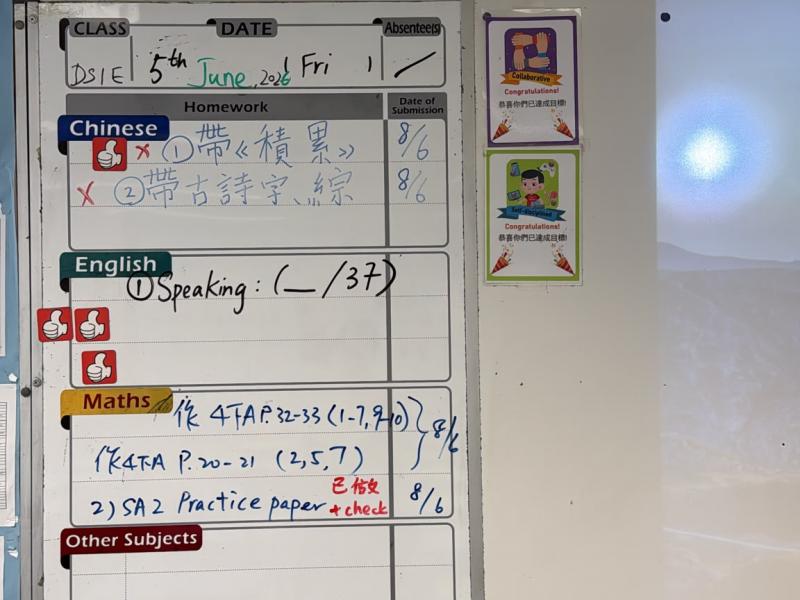 CLASS DATE Absentee(s)
DS1E 5th June, 2026 Fri 1 /
Homework Date of Submission
Chinese
× ① 帶《積累》 8/6
× ② 帶古詩字、綜 8/6
English
① Speaking: (_/37)
Maths
作 4下A P.32-33 (1-7, 9-10)
作4下A P.20-21 (2,5,7) 8/6
2) SA2 Practice paper +check 8/6
Other Subjects
Collaborative
Congratulations!
恭喜你們已達成目標!
Self-disciplined
Congratulations!
恭喜你們已達成目標!